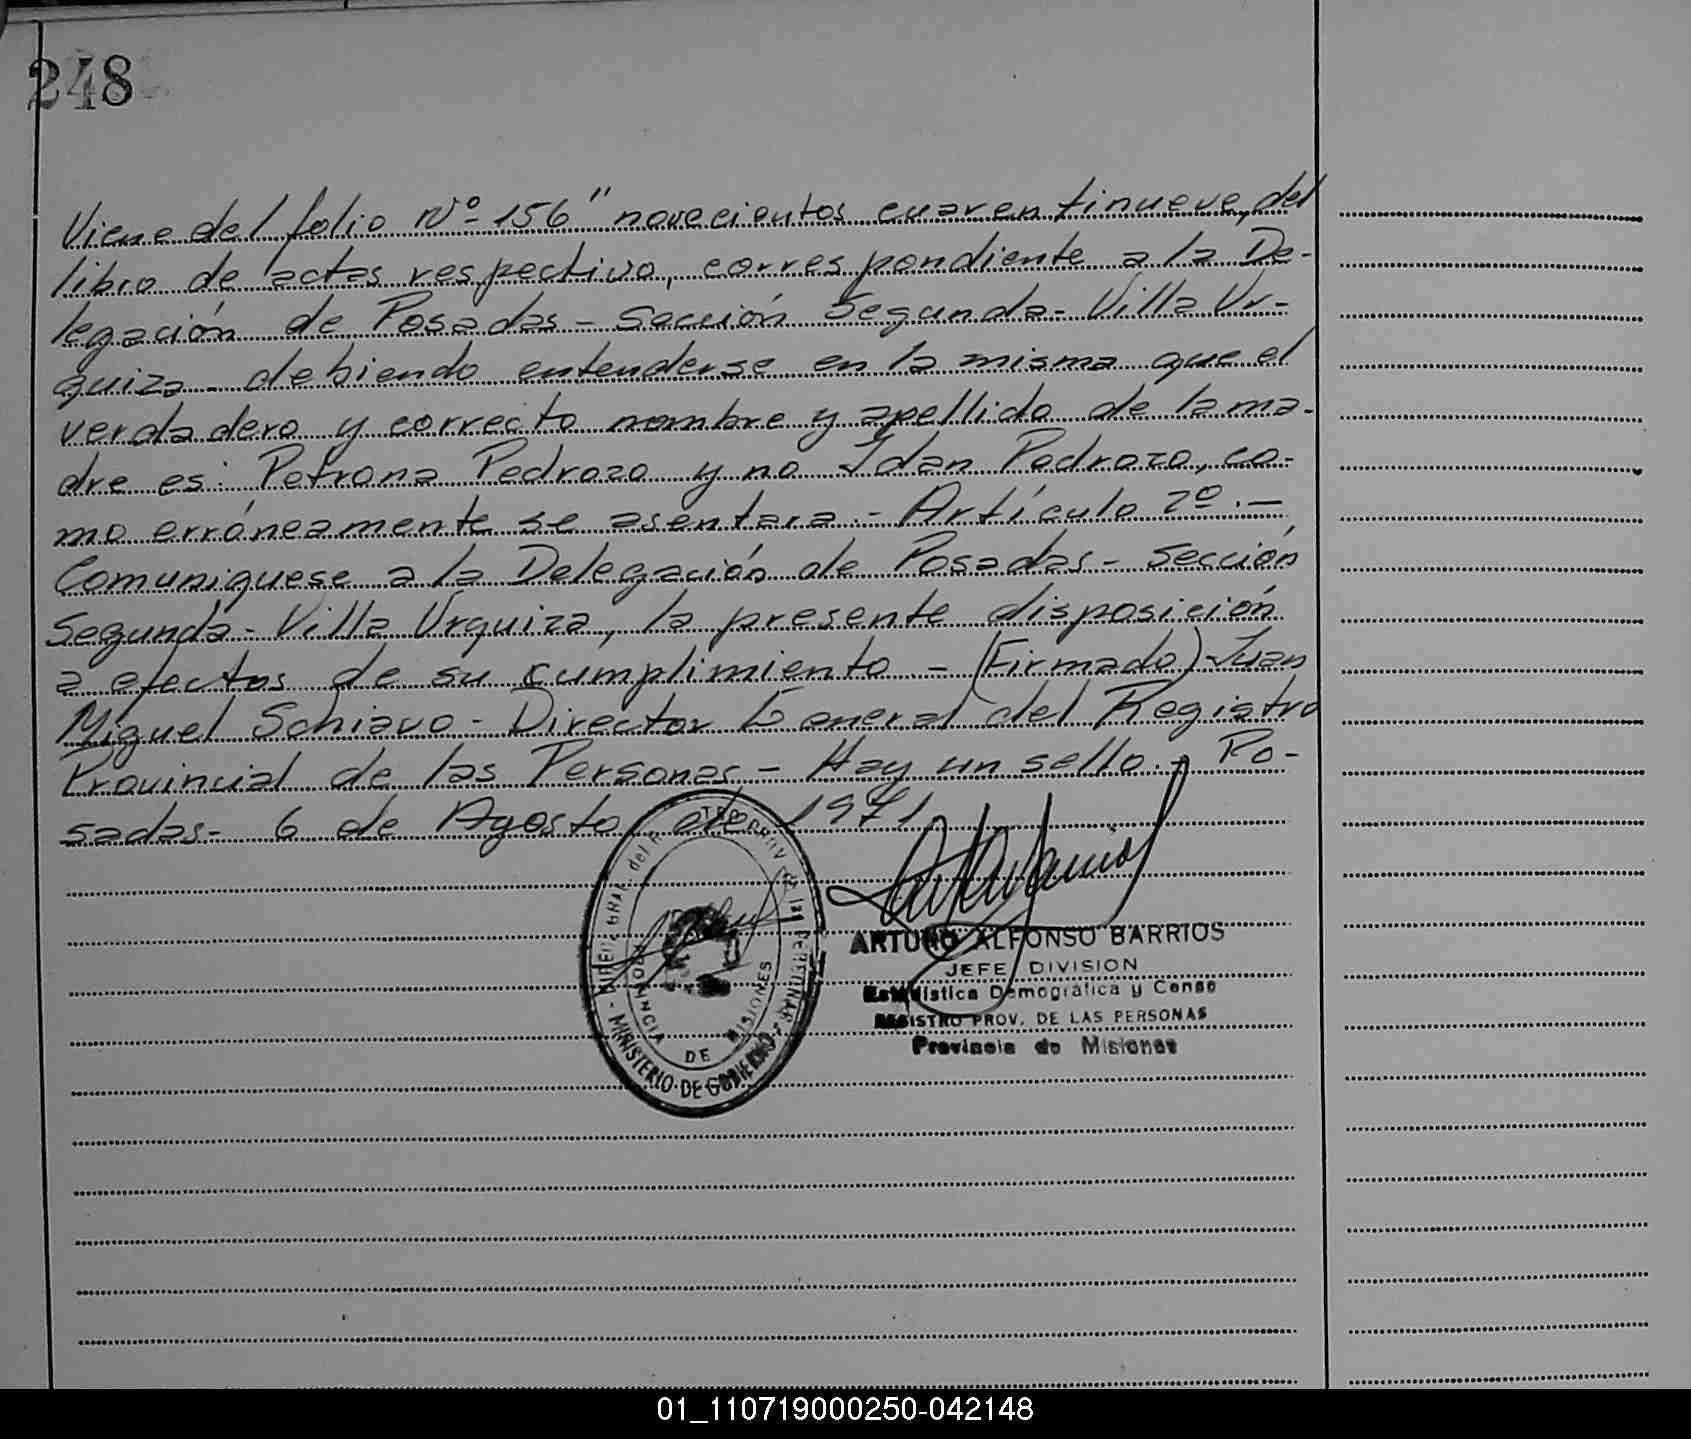 248
Viene del folio Nº 156 " novecientos cuarentinueve, del
libro de actas respectivo, correspondiente a la De-
legación de Posadas - Sección Segunda - Villa Ur-
quiza - debiendo entenderse en la misma que el
verdadero y correcto nombre y apellido de la ma-
dre es: Petrona Pedrozo y no Idan Pedrozo, co-
mo erróneamente se asentara.- Artículo 2º.-
Comuníquese a la Delegación de Posadas - Sección
Segunda - Villa Urquiza, la presente disposición
a efectos de su cumplimiento - (Firmado) Juan
Miguel Schiavo - Director General del Registro
Provincial de las Personas - Hay un sello.- Po-
sadas - 6 de Agosto de 1971
MINISTERIO DE GOBIERNO
PROVINCIA DE MISIONES
ARTURO ALFONSO BARRIOS
JEFE DIVISION
Estadistica Demográfica y Censo
REGISTRO PROV. DE LAS PERSONAS
Provincia de Misiones
01_110719000250-042148